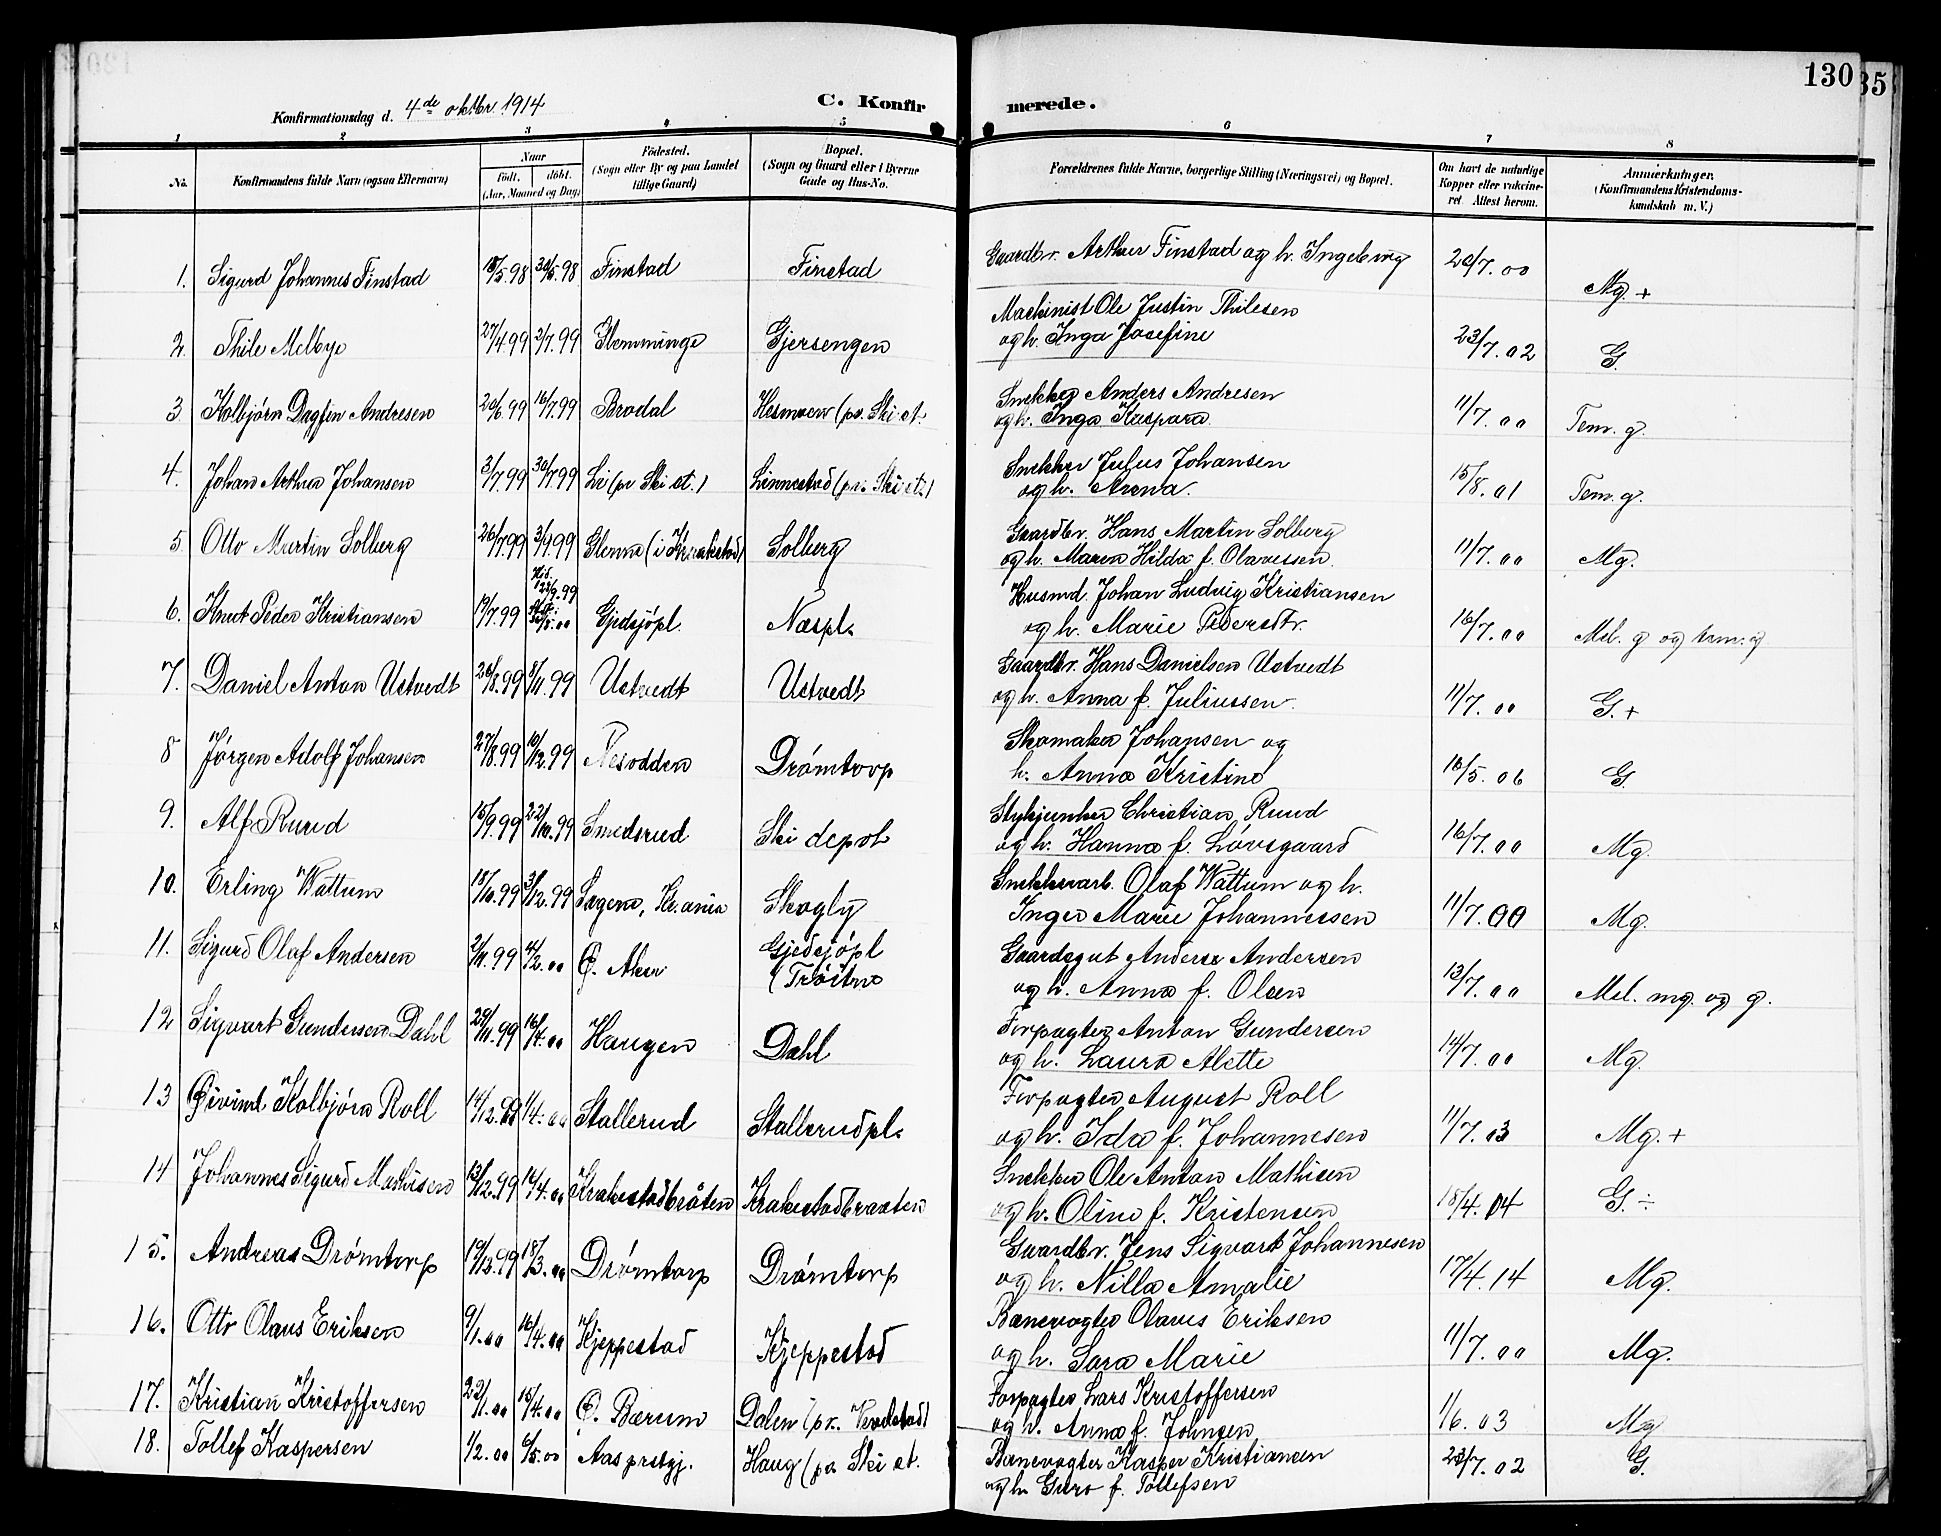 130
35
C. Konfir merede.
Konfirmationsdag d. 4de oktbr. 1914
1 2 3 4 5 6 7 8
No. Konfirmandens fulde Navn (ogsaa Efternavn) Naar født. døbt. (Aar, Maaned og Dag) Fødested. (Sogn eller By og paa Landet tillige Gaard) Bopæl. (Sogn og Gaard eller i Byerne Gade og Hus-No. Forældrenes fulde Navne, borgerlige Stilling (Næringsvei) og Bopæl. Om havt de naturlige Kopper eller vakcineret Attest herom. Anmerkninger. (Konfirmandens Kristendomskundskab m. V.)
1. Sigurd Johannes Finstad 18/5.98 30/5.98 Finstad Finstad Gaardbr. Arthur Finstad og h. Ingeborg 20/7.00 Mg. +
2. Thile Melbye 27/4.99 2/7.99 Glemminge Gjersengen Maskinist Ole Justin Thilesen
og h. Inga Josefine 23/7.02 G.
3 Kolbjörn Dagfin Andresen 20/6 99 16/7.99 Brodal Hesmoen (pr. Ski st. Snekker Anders Andresen
og h. Inga Kaspara 11/7.00 Tem. g.
4. Johan Arthur Johansen 3/7.99 30/7.99 Li (pr Ski st.) Linnestad (pr. Ski st.) Snekker Julius Johansen
og h. Anna. 15/8.01 Tem. g.
5. Otto Martin Solberg 26/7.99 3/9.99 Glenne (i Kraakstad) Solberg Gaardbr. Hans Martin Solberg
og h. Maren Hilda f. Olavessen. 11/7.00 Mg.
6. Knut Peder Kristiansen 19/7.99 Gjedsjöpl. Næspl. Husmd. Johan Ludvig Kristiansen
og h. Marie Pedersdtr. 16/7.00 Mel. g og tem. g
7. Daniel Anton Ustvedt 20/8.99 5/11.99 Ustvedt Ustvedt Gaardbr. Hans Danielsen Ustvedt
og h. Anna f. Juliussen. 11/7.00 G. +
8 Jörgen Adolf Johansen 27/8.99 10/12.99 Nesodden Drömtorp Skomaker Johansen og
h. Anna Kristine 16/5.06 G.
9. Alf Ruud 15/9.99 22/10.99 Smedsrud Ski depot Stykjunker Christian Ruud
og h. Hanna f. Lövsgaard 16/7.00 Mg.
10. Erling Wattum 18/10.99 3/12.99 Sagene, Kr.ania Skogly Snekkerarb. Olaf Wattum og h.
Inger Marie Johannessen 11/7.00 Mg.
11. Sigurd Olaf Andersen 2/11.99 4/2.00 Ö. Aker Gjedsjöpl
(Tröitne Gaardsgut Anders Andersen
og h. Anna f. Olsen 13/7.00 Mel. mg. og g.
12 Sigvart Gundersen Dahl 29/11.99 16/4.00 Haugen Dahl Forpagter Anton Gundersen
og h. Laura Alette 14/7.00 Mg.
13 Öivind Kolbjörn Roll 14/12.99 1/4.00 Stallerud Stallerudpl. Forpagter August Roll
og h. Ida f. Johannesen 11/7.03 Mg. +
14 Johannes Sigurd Mathisen 13/12.99 16/4.00 Krakestadbråten Krakestadbraaten Snekker Ole Anton Mathisen
og h. Oline f. Kristensen 18/4.04 G. ÷
15. Andreas Drömtorp 19/12.99 18/3.00 Drömtorp Drömtorp Gaardbr. Jens Sigvart Johannesen
og h. Nilla Amalie 17/4.14 Mg.
16. Otto Olaus Eriksen 9/1.00 16/4.00 Kjeppestad Kjeppestad Banevogter Olaves Eriksen
og h. Sara Marie 11/7.00 Mg.
17. Kristian Kristoffersen 22/1.00 15/4.00 Ö. Bærum Dalen (pr. Vevelstad) Forpagter Lars Kristoffersen
og h. Anna f. Johnsen 1/6.03 Mg
18. Tollef Kaspersen 1/2.00 6/5.00 Aas prstgj. Haug (pr Ski st. Banevogter Kasper Kristiansen
og h Guro f. Tollefsen 23/7.02 G.